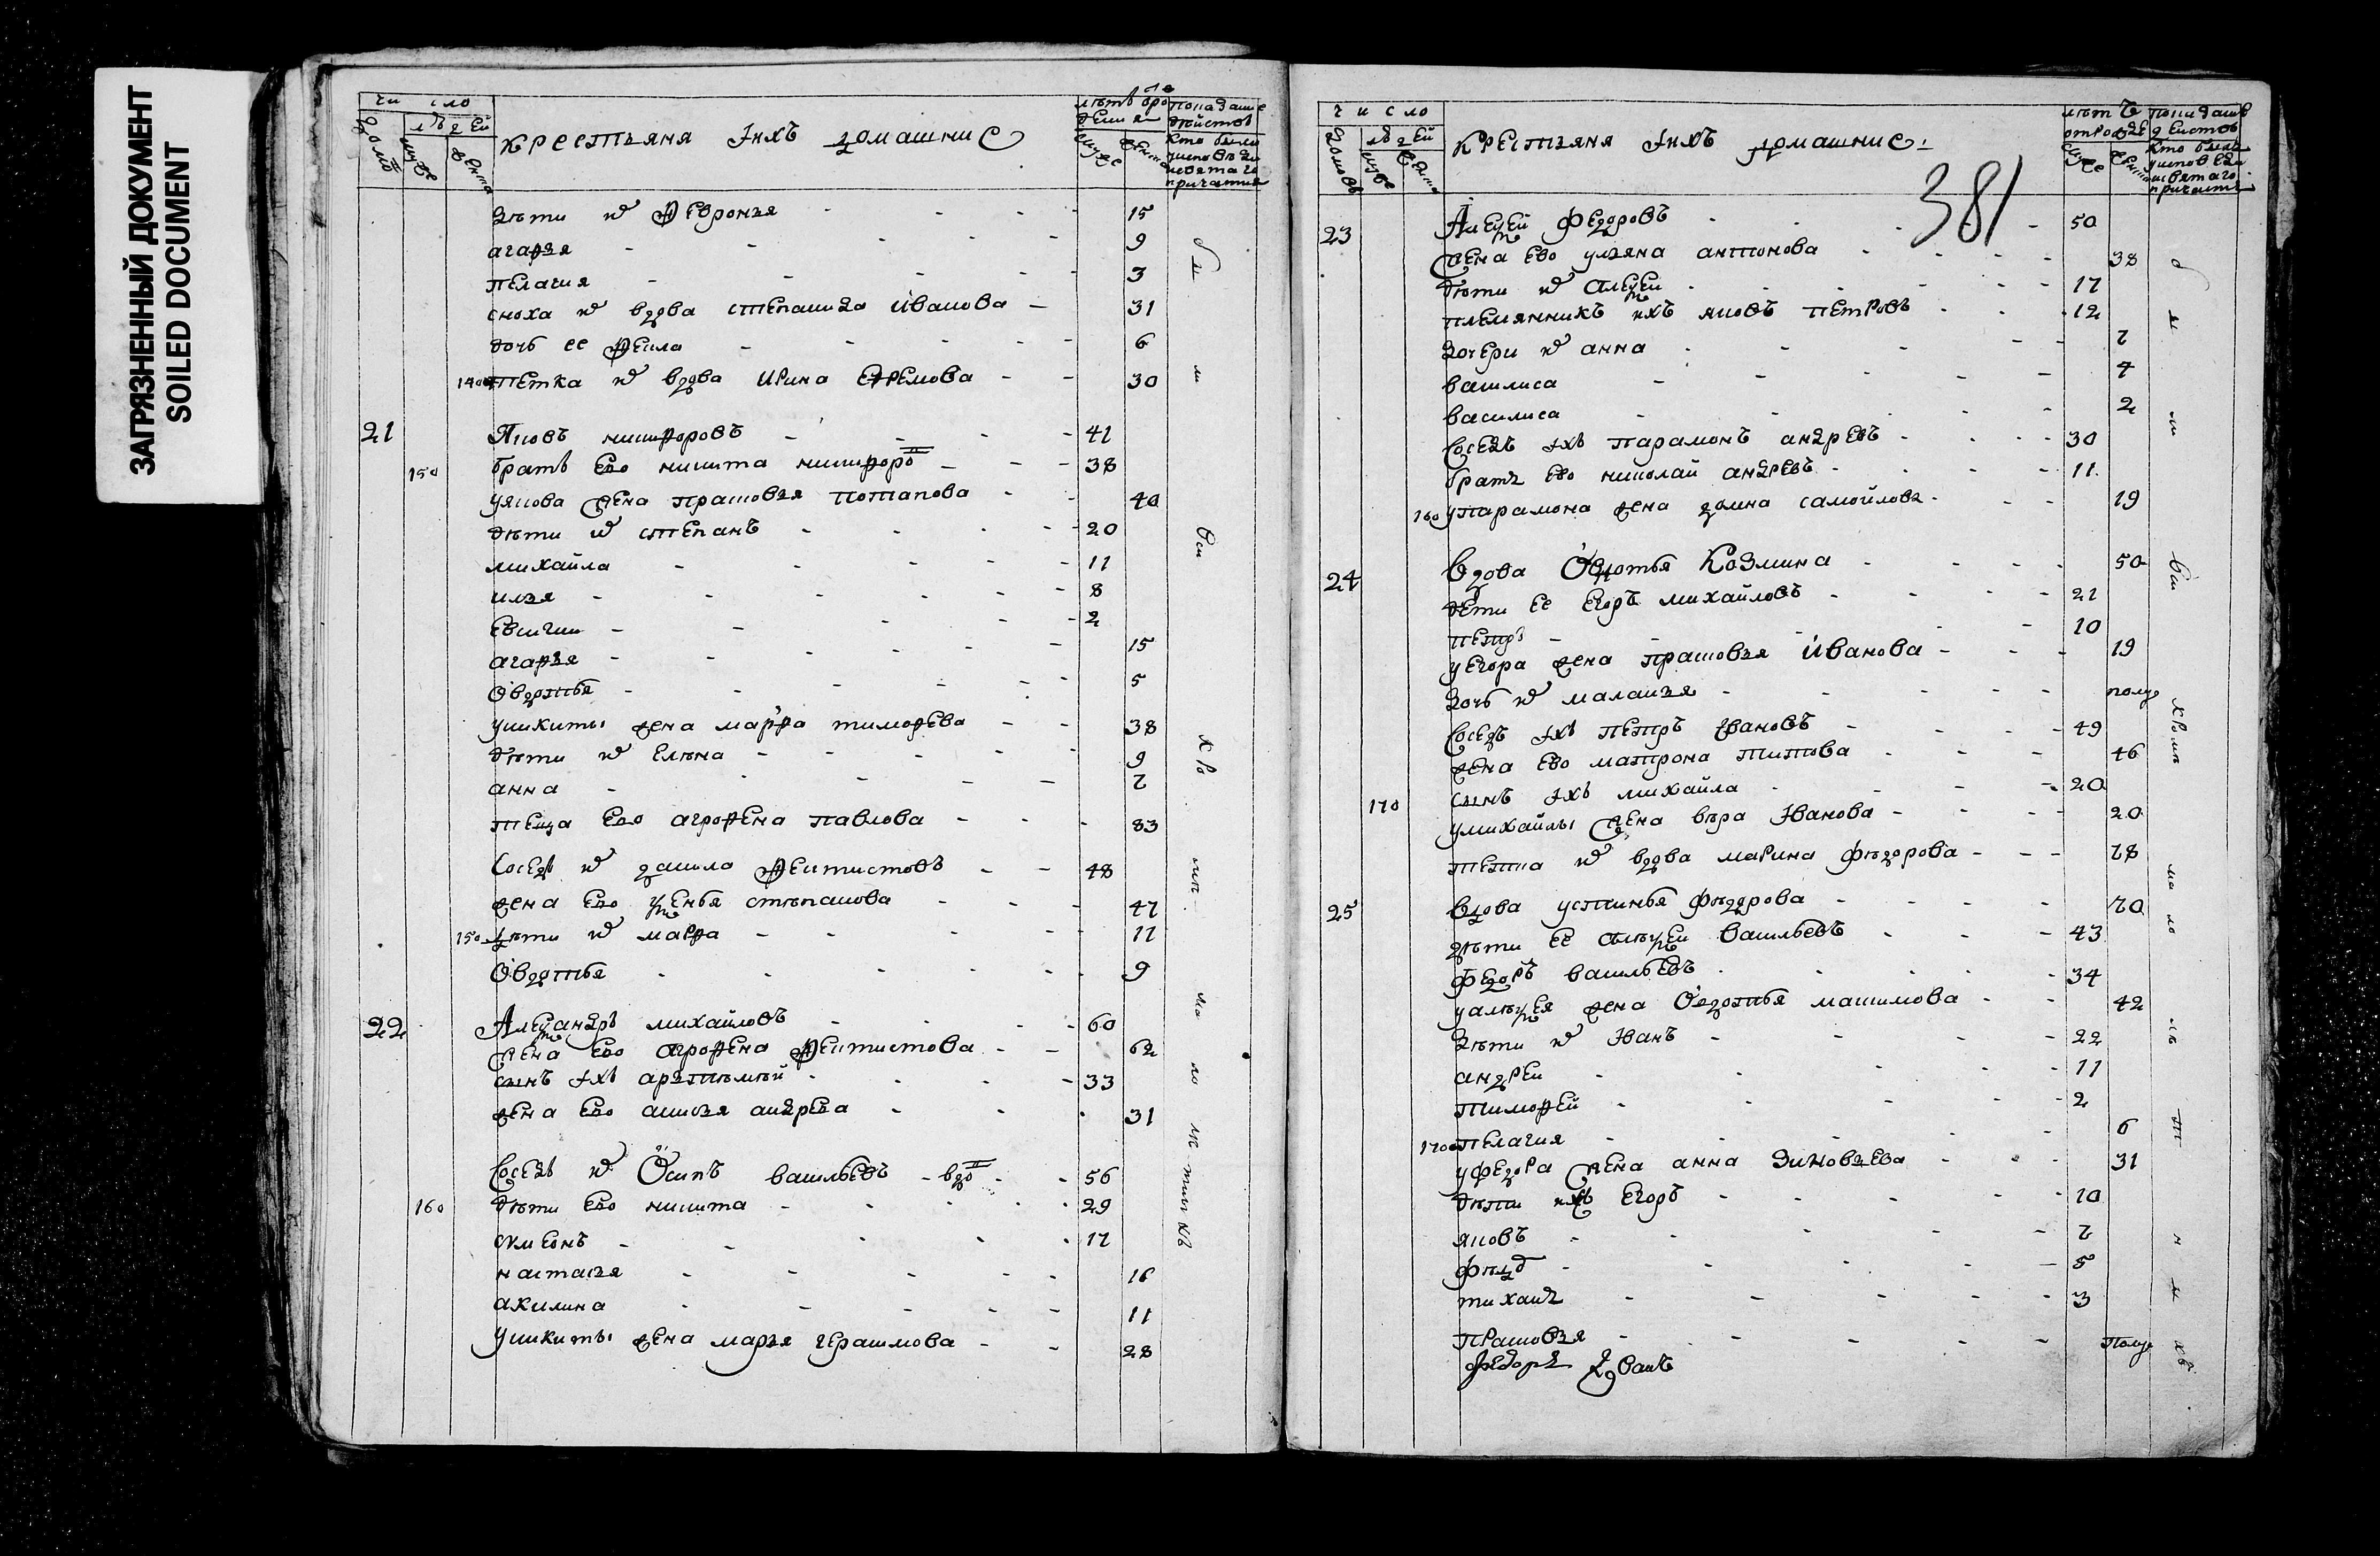 ЗАГРЯЗНЕННЫЙ ДОКУМЕНТ
SOILED DOCUMENT
число
людей
крестьяня ихъ домашние
дѣти Февронья - 15
агафья - 9
пелагия - 3
сноха вдова степанида иванова - 31
дочь ее Фекла - 6
тетка вдова ирина ефремова - 30
21 Яковъ никифоровъ - 41
150 братъ ево никита никифоро - 38
уякова жена прасковья потапова - 40
дѣти степанъ - 20
михайла - 11
илья - 8
евсигни - 2
агафья - 15
овдотья - 5
уникиты жена марфа тимофева - 38
дѣти елѣна - 9
анна - 7
теща ево агрофена павлова - 83
сосед данила Фектистовъ - 48
жена ево ксенья стѣпанова - 47
150 дѣти марфа - 11
Овдотья - 9
22 Александръ михайловъ - 60
жена ево агрофена фектистова - 62
сынъ ихъ артѣмѣй - 33
жена ево анисья андрева - 31
сосед Осипъ васильевъ - вдо - 56
160 дѣти ево никита - 29
симеонъ - 17
настасья - 16
акилина - 11
уникиты жена марья герасимова - 28
число
людей
крестьяня ихъ домашние
381
23 Алексей федоровъ - 50
жена ево ульяна антонова - 38
дѣти алексеи - 17
племянникъ ихъ яковъ петровъ - 12
дочери анна - 7
василиса - 4
василиса - 2
соседъ ихъ парамонъ андревъ - 30
братъ ево николаи андревъ - 11
160 упарамона жена домна самойлова - 19
24 Вдова Овдотья Козмина - 50
дети ее егоръ михайловъ - 21
петръ - 10
уегора жена прасковья иванова - 19
дочь маланья - полуго
соседъ ихъ петръ ивановъ - 49
жена ево матрона титова - 46
170 сынъ ихъ михайла - 20
умихайлы жена вѣра иванова - 20
тетка вдова марина фѣдорова - 78
25 Вдова устинья фѣдорова - 70
дѣти ее алѣксеи васильевъ - 43
федоръ васильевъ - 34
уалѣксея жена Овдотья максимова - 42
дѣти иванъ - 22
андреи - 11
тимофей - 2
170 пелагия - 6
уфедора жена анна зиновьева - 31
дѣти ихъ егоръ - 10
яковъ - 7
фѣдо - 5
тиханъ - 3
прасковья - полуго
федоръ